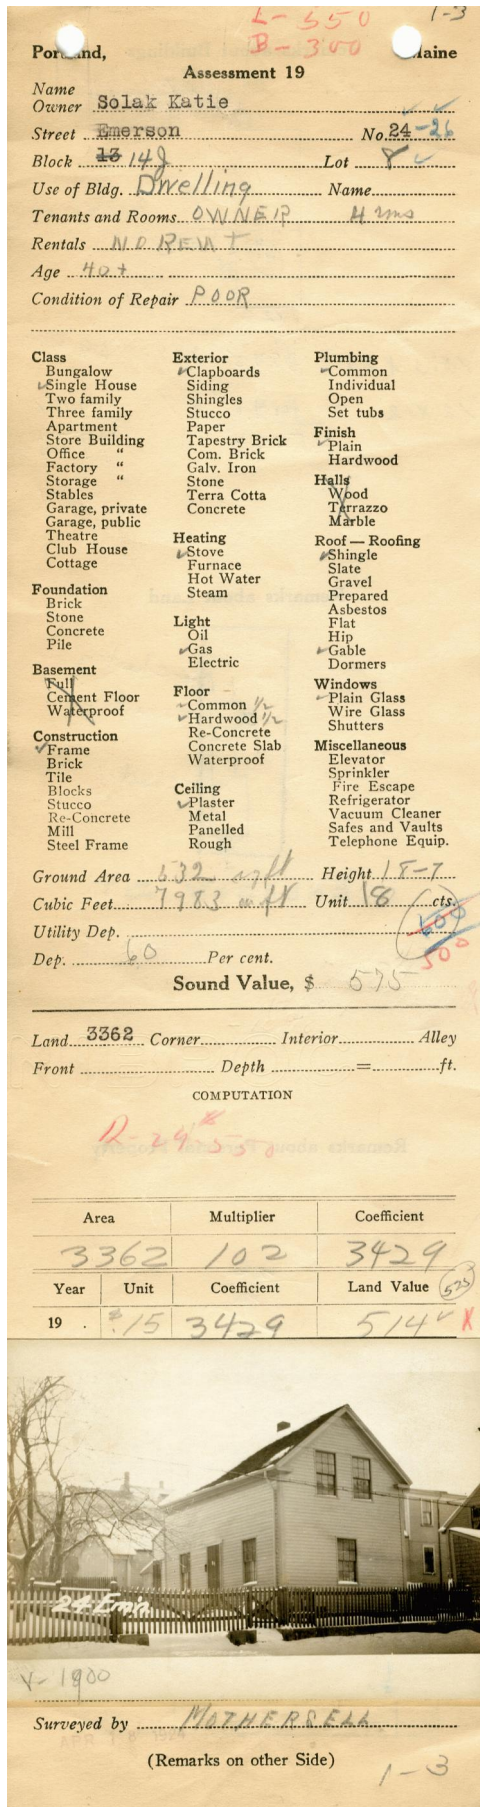 L-550 1-3
B-300
Portland, Maine
Assessment 19
Name
Owner Solak Katie
Street Emerson No. 24 -26
Block 13 14J Lot 8
Use of Bldg. Dwelling Name
Tenants and Rooms OWNER 4 rms
Rentals NO RENT
Age 40+
Condition of Repair POOR
Class
Bungalow
Single House
Two family
Three family
Apartment
Store Building
Office "
Factory "
Storage "
Stables
Garage, private
Garage, public
Theatre
Club House
Cottage
Foundation
Brick
Stone
Concrete
Pile
Basement
Full
Cement Floor
Waterproof
Construction
Frame
Brick
Tile
Blocks
Stucco
Re-Concrete
Mill
Steel Frame
Exterior
Clapboards
Siding
Shingles
Stucco
Paper
Tapestry Brick
Com. Brick
Galv. Iron
Stone
Terra Cotta
Concrete
Heating
Stove
Furnace
Hot Water
Steam
Light
Oil
Gas
Electric
Floor
Common 1/2
Hardwood 1/2
Re-Concrete
Concrete Slab
Waterproof
Ceiling
Plaster
Metal
Panelled
Rough
Plumbing
Common
Individual
Open
Set tubs
Finish
Plain
Hardwood
Halls
Wood
Terrazzo
Marble
Roof — Roofing
Shingle
Slate
Gravel
Prepared
Asbestos
Flat
Hip
Gable
Dormers
Windows
Plain Glass
Wire Glass
Shutters
Miscellaneous
Elevator
Sprinkler
Fire Escape
Refrigerator
Vacuum Cleaner
Safes and Vaults
Telephone Equip.
Ground Area 532 sq ft Height 15-7
Cubic Feet 7983 cu ft Unit 18 cts.
Utility Dep. 600
Dep. 60 Per cent. 300
Sound Value, $ 575
Land 3362 Corner Interior Alley
Front Depth = ft.
COMPUTATION
Area Multiplier Coefficient
3362 102 3429
Year Unit Coefficient Land Value 525
19 . $.15 3429 514 X
24 Emn.
V-1900
Surveyed by MOTHERSELL
(Remarks on other Side)
1-3